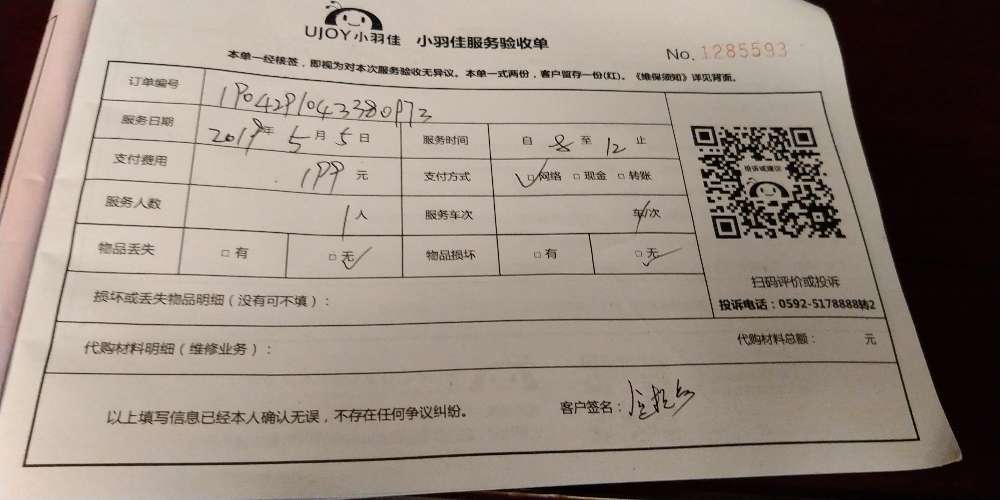 UJOY小羽佳 小羽佳服务验收单
No. 1285593
本单一经核签，即视为对本次服务验收无异议。本单一式两份，客户留存一份(红)。《维保须知》详见背面。
订单编号 1904291043380973
服务日期 2019年5月5日 服务时间 自8至12止
支付费用 199元 支付方式 ☑网络 □现金 □转账
服务人数 1人 服务车次 车/次
物品丢失 □有 □无✓ 物品损坏 □有 □无✓
投诉或建议
扫码评价或投诉
投诉电话：0592-5178888转2
损坏或丢失物品明细（没有可不填）：
代购材料明细（维修业务）： 代购材料总额： 元
以上填写信息已经本人确认无误，不存在任何争议纠纷。 客户签名：